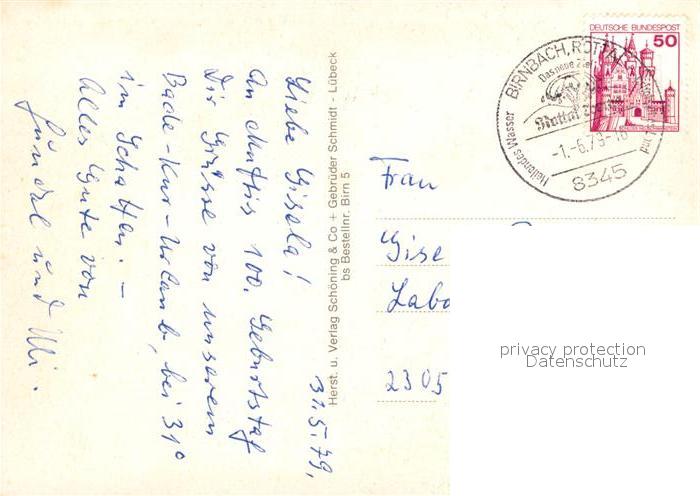 31.5.79.
Liebe Gisela!
An Muttis 100. Geburtstag
Dir Grüsse von unserem
Bade-Kur-Urlaub, bei 31°
im Schatten. –
Alles Gute von
und Uli.
Herst. u. Verlag Schöning & Co + Gebrüder Schmidt - Lübeck
bs Bestellnr. Birn 5
DEUTSCHE BUNDESPOST
50
BIRNBACH, ROTTAL
Das neue
Heilendes Wasser
-1.-6.79-
8345
Frau
Gise
Labo
2305
privacy protection
Datenschutz